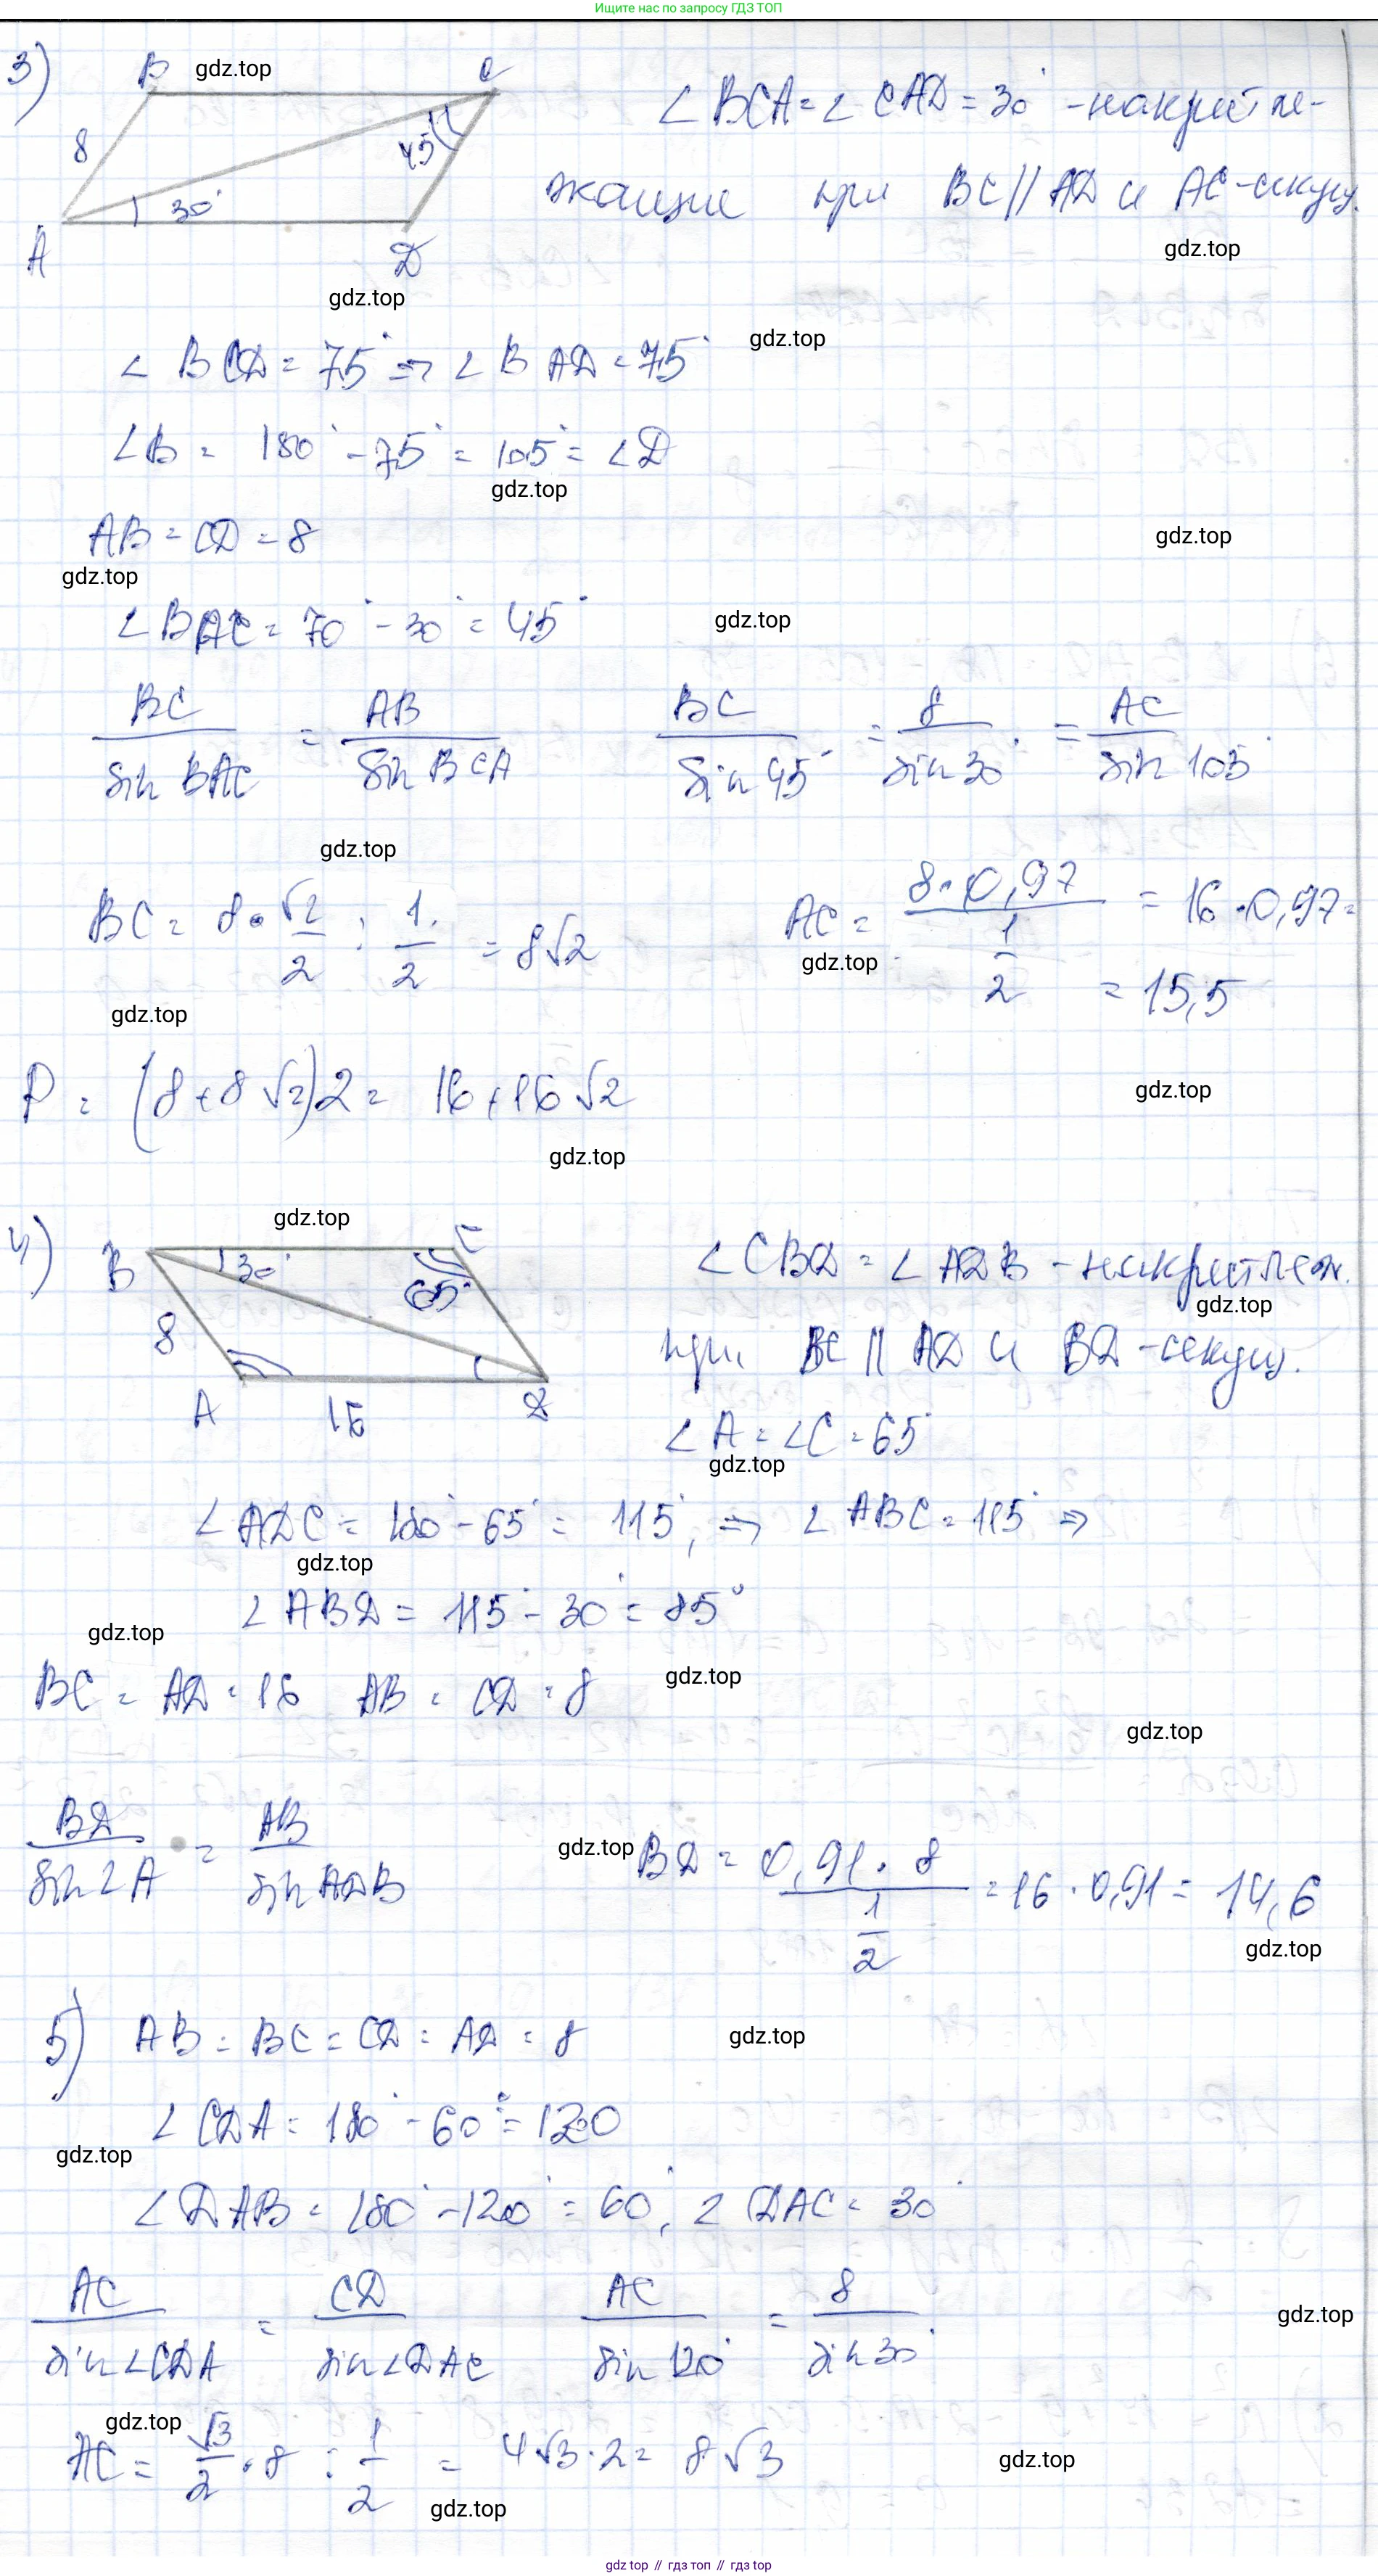 Ищите нас по запросу ГДЗ ТОП
3)
B gdz.top C
8 45°
30°
A D
∠BCA = ∠CAD = 30° - накрест ле-
жащие при BC || AD и AC - секущ.
gdz.top
gdz.top
∠BCD = 75° ⇒ ∠BAD = 75°
gdz.top
∠B = 180° - 75° = 105° = ∠D
gdz.top
AB = CD = 8
gdz.top
gdz.top
∠BAC = 70° - 30° = 45°
gdz.top
BC / sin BAC = AB / sin BCA
BC / sin 45° = 8 / sin 30° = AC / sin 105°
gdz.top
BC = 8 · √2/2 : 1/2 = 8√2
AC = 8 · 0,97 / 1/2 = 16 · 0,97 =
= 15,5
gdz.top
gdz.top
P = (8 + 8√2)2 = 16 + 16√2
gdz.top
gdz.top
4)
gdz.top
B 30° C
65°
8
A 16 D
∠CBD = ∠ADB - накрест леж.
gdz.top
при BC || AD и BD - секущ.
∠A = ∠C = 65°
gdz.top
∠ADC = 180° - 65° = 115°, ⇒ ∠ABC = 115° ⇒
gdz.top
∠ABD = 115° - 30° = 85°
gdz.top
BC = AD = 16 AB = CD = 8
gdz.top
gdz.top
BD / sin ∠A = AB / sin ADB
gdz.top
BD = 0,91 · 8 / 1/2 = 16 · 0,91 = 14,6
gdz.top
5) AB = BC = CD = AD = 8
gdz.top
∠CDA = 180° - 60° = 120
gdz.top
∠DAB = 180° - 120° = 60°, ∠DAC = 30°
AC / sin ∠CDA = CD / sin ∠DAC
AC / sin 120° = 8 / sin 30°
gdz.top
gdz.top
AC = √3/2 · 8 : 1/2 = 4√3 · 2 = 8√3
gdz.top
gdz.top
gdz top // гдз топ // gdz top